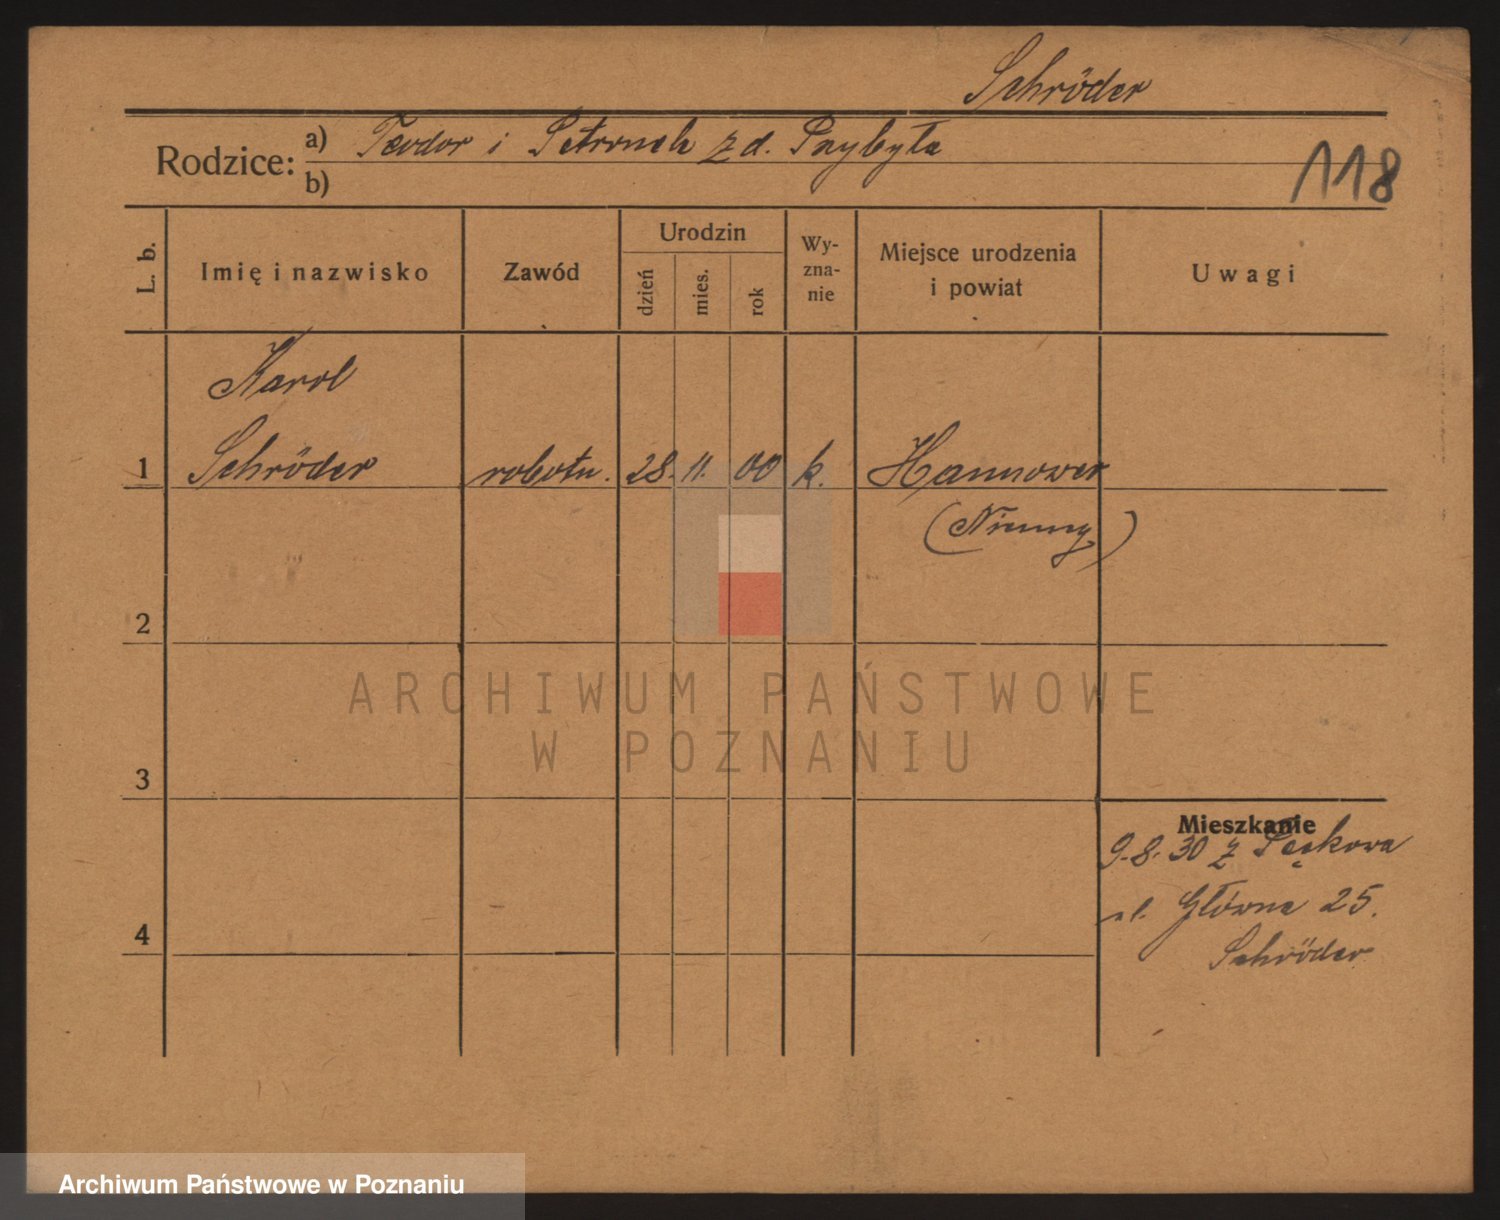 Schröder
Rodzice: a) Teodor i Petronela z d. Przybyła
b)
118
L. b.
Imię i nazwisko
Zawód
Urodzin
dzień
mies.
rok
Wy-
zna-
nie
Miejsce urodzenia
i powiat
Uwagi
Karol
1 Schröder robotn. 28. 11. 00 k. Hannower
(Niemcy)
2
ARCHIWUM PAŃSTWOWE
W POZNANIU
3
Mieszkanie
9.8.30 z Pęckowa
4 ul. Główna 25.
Schröder
Archiwum Państwowe w Poznaniu